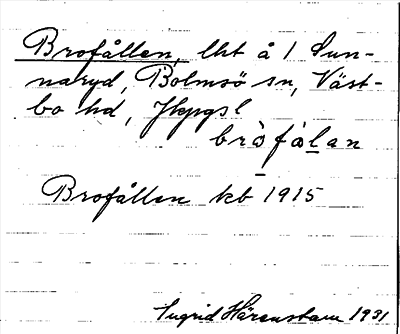 Brofållen, lht å 1 Sun-
naryd, Bolmsö sn, Väst-
bo hd, Jkpgsl
bròfàlan
Brofållen kb 1915
Ingrid Härenstam 1931